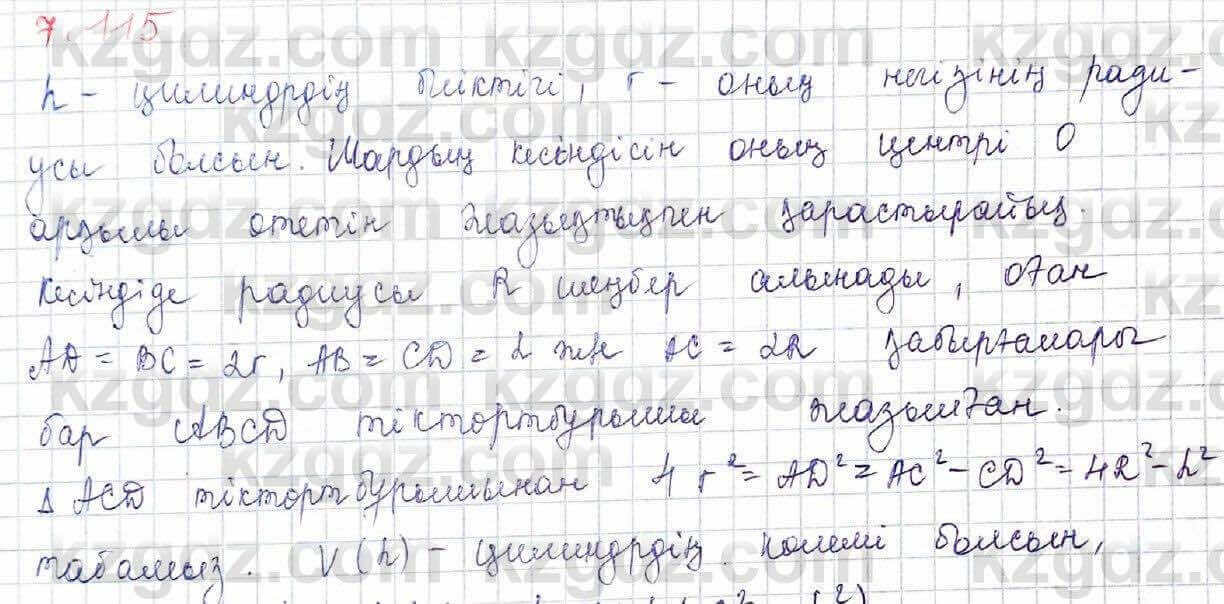 7.115
h - цилиндрдің биіктігі, r - оның негізінің ради-
усы болсын. Шардың кесіндісін оның центрі О
арқылы өтетін жазықтықпен қарастырайық.
Кесіндіде радиусы R шеңбер алынады, оған
AD = BC = 2r, AB = CD = h және AC = 2R қабырғалары
бар ABCD тіктөртбұрышы жазылған.
Δ ACD тіктөртбұрышынан 4r² = AD² = AC² - CD² = 4R² - h²
табамыз. V(h) - цилиндрдің көлемі болсын,